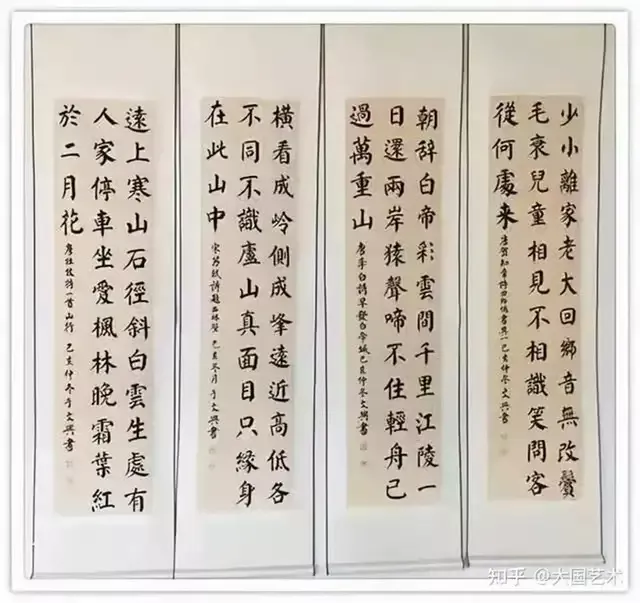 少小離家老大回鄉音無改鬢
毛衰兒童相見不相識笑問客
從何處来
唐賀知章詩回鄉偶書其一己亥仲冬文興書
朝辞白帝彩雲間千里江陵一
日還兩岸猿聲啼不住輕舟已
過萬重山
唐李白詩早發白帝城己亥仲冬文興書
橫看成岭側成峰遠近高低各
不同不識廬山真面目只緣身
在此山中
宋蘇軾詩題西林壁 己亥冬月于文興書
遠上寒山石徑斜白雲生處有
人家停車坐愛楓林晚霜葉紅
於二月花
唐杜牧詩一首山行 己亥仲冬于文興書
知乎 @大国艺术